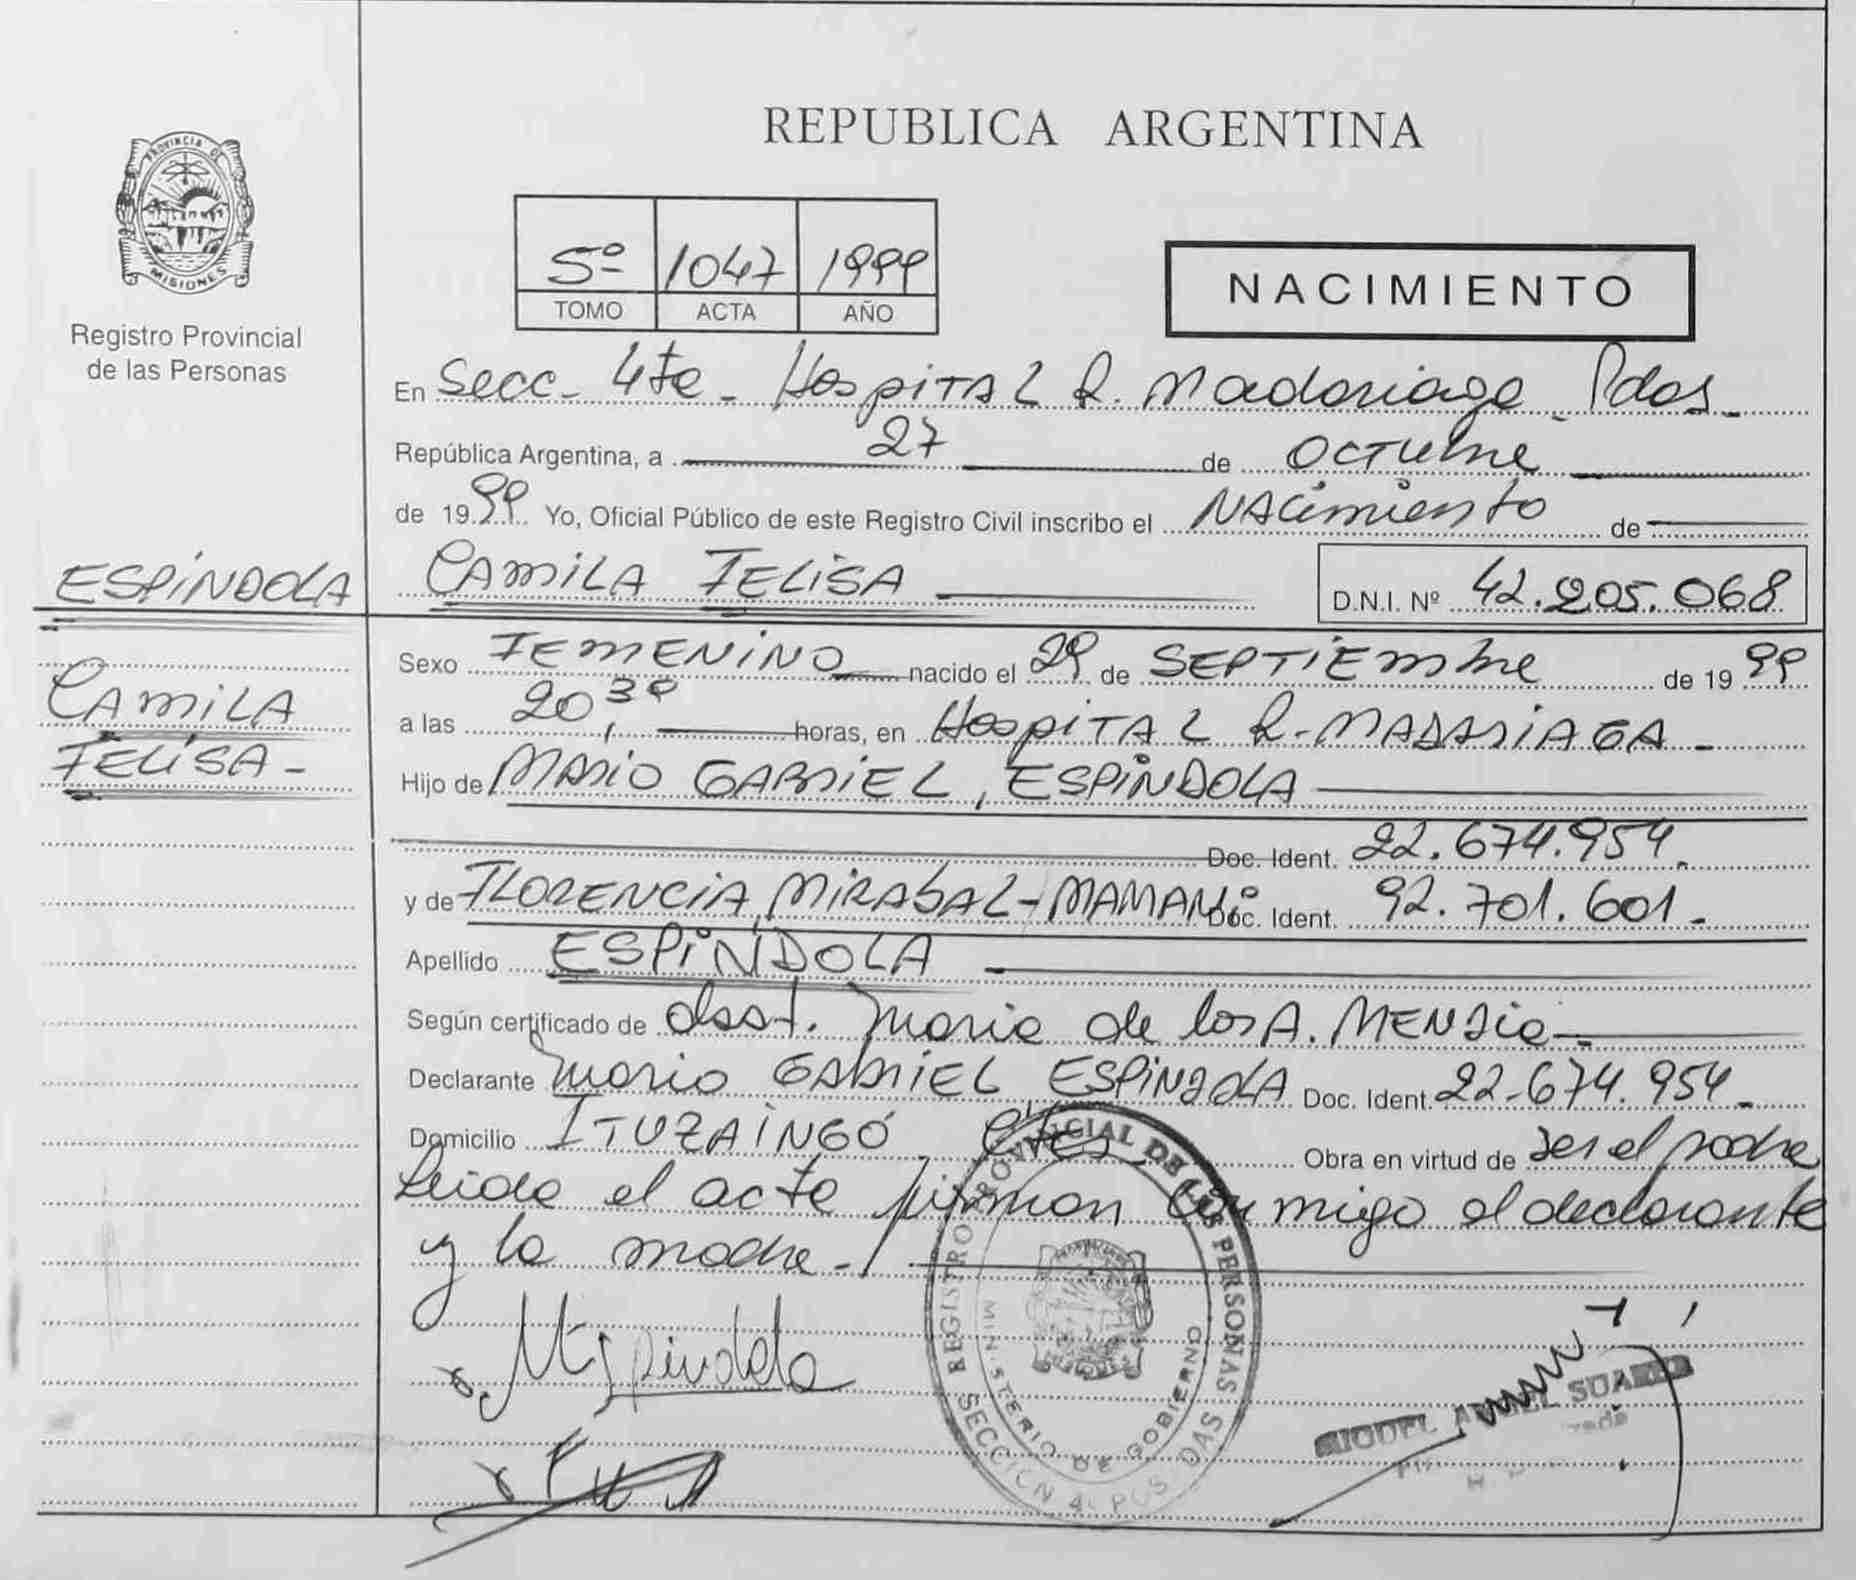 PROVINCIA DE
MISIONES
Registro Provincial
de las Personas
REPUBLICA ARGENTINA
5º 1047 1999
TOMO ACTA AÑO
NACIMIENTO
En Secc. 4ta. Hospital R. Madariaga. Pdas.
República Argentina, a 27 de Octubre
de 1999 Yo, Oficial Público de este Registro Civil inscribo el Nacimiento de
ESPÍNDOLA
CAMILA FELISA
D.N.I. Nº 42.205.068
CAMILA
FELISA-
Sexo FEMENINO nacido el 29 de SEPTIEMbre de 1999
a las 20,30 horas, en Hospital R. MADARIAGA -
Hijo de MARIO GABRIEL, ESPÍNDOLA
Doc. Ident. 22.674.954.
y de FLORENCIA MIRABAL-MAMANI Doc. Ident. 92.701.601.-
Apellido ESPÍNDOLA
Según certificado de obst. Maria de los A. MENDIE
Declarante Mario GABRIEL ESPINDOLA Doc. Ident. 22.674.954.
Domicilio ITUZAINGÓ Ctes Obra en virtud de ser el padre
Leida el acta firman conmigo el declarante
y la madre.-
M Espindola
REGISTRO PROVINCIAL DE LAS PERSONAS
MINISTERIO DE GOBIERNO
SECCION 4 POSADAS
MIGUEL ANGEL SUAREZ